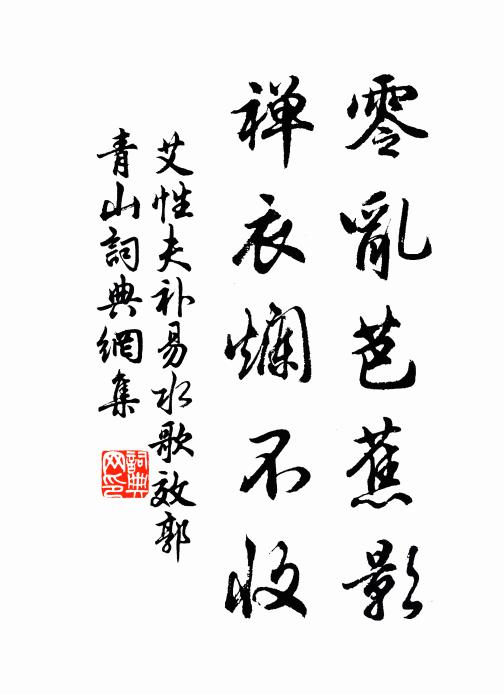 零亂芭蕉影
禪衣爛不收
艾性夫补易水歌效郭
青山詞典網集
詞典网印